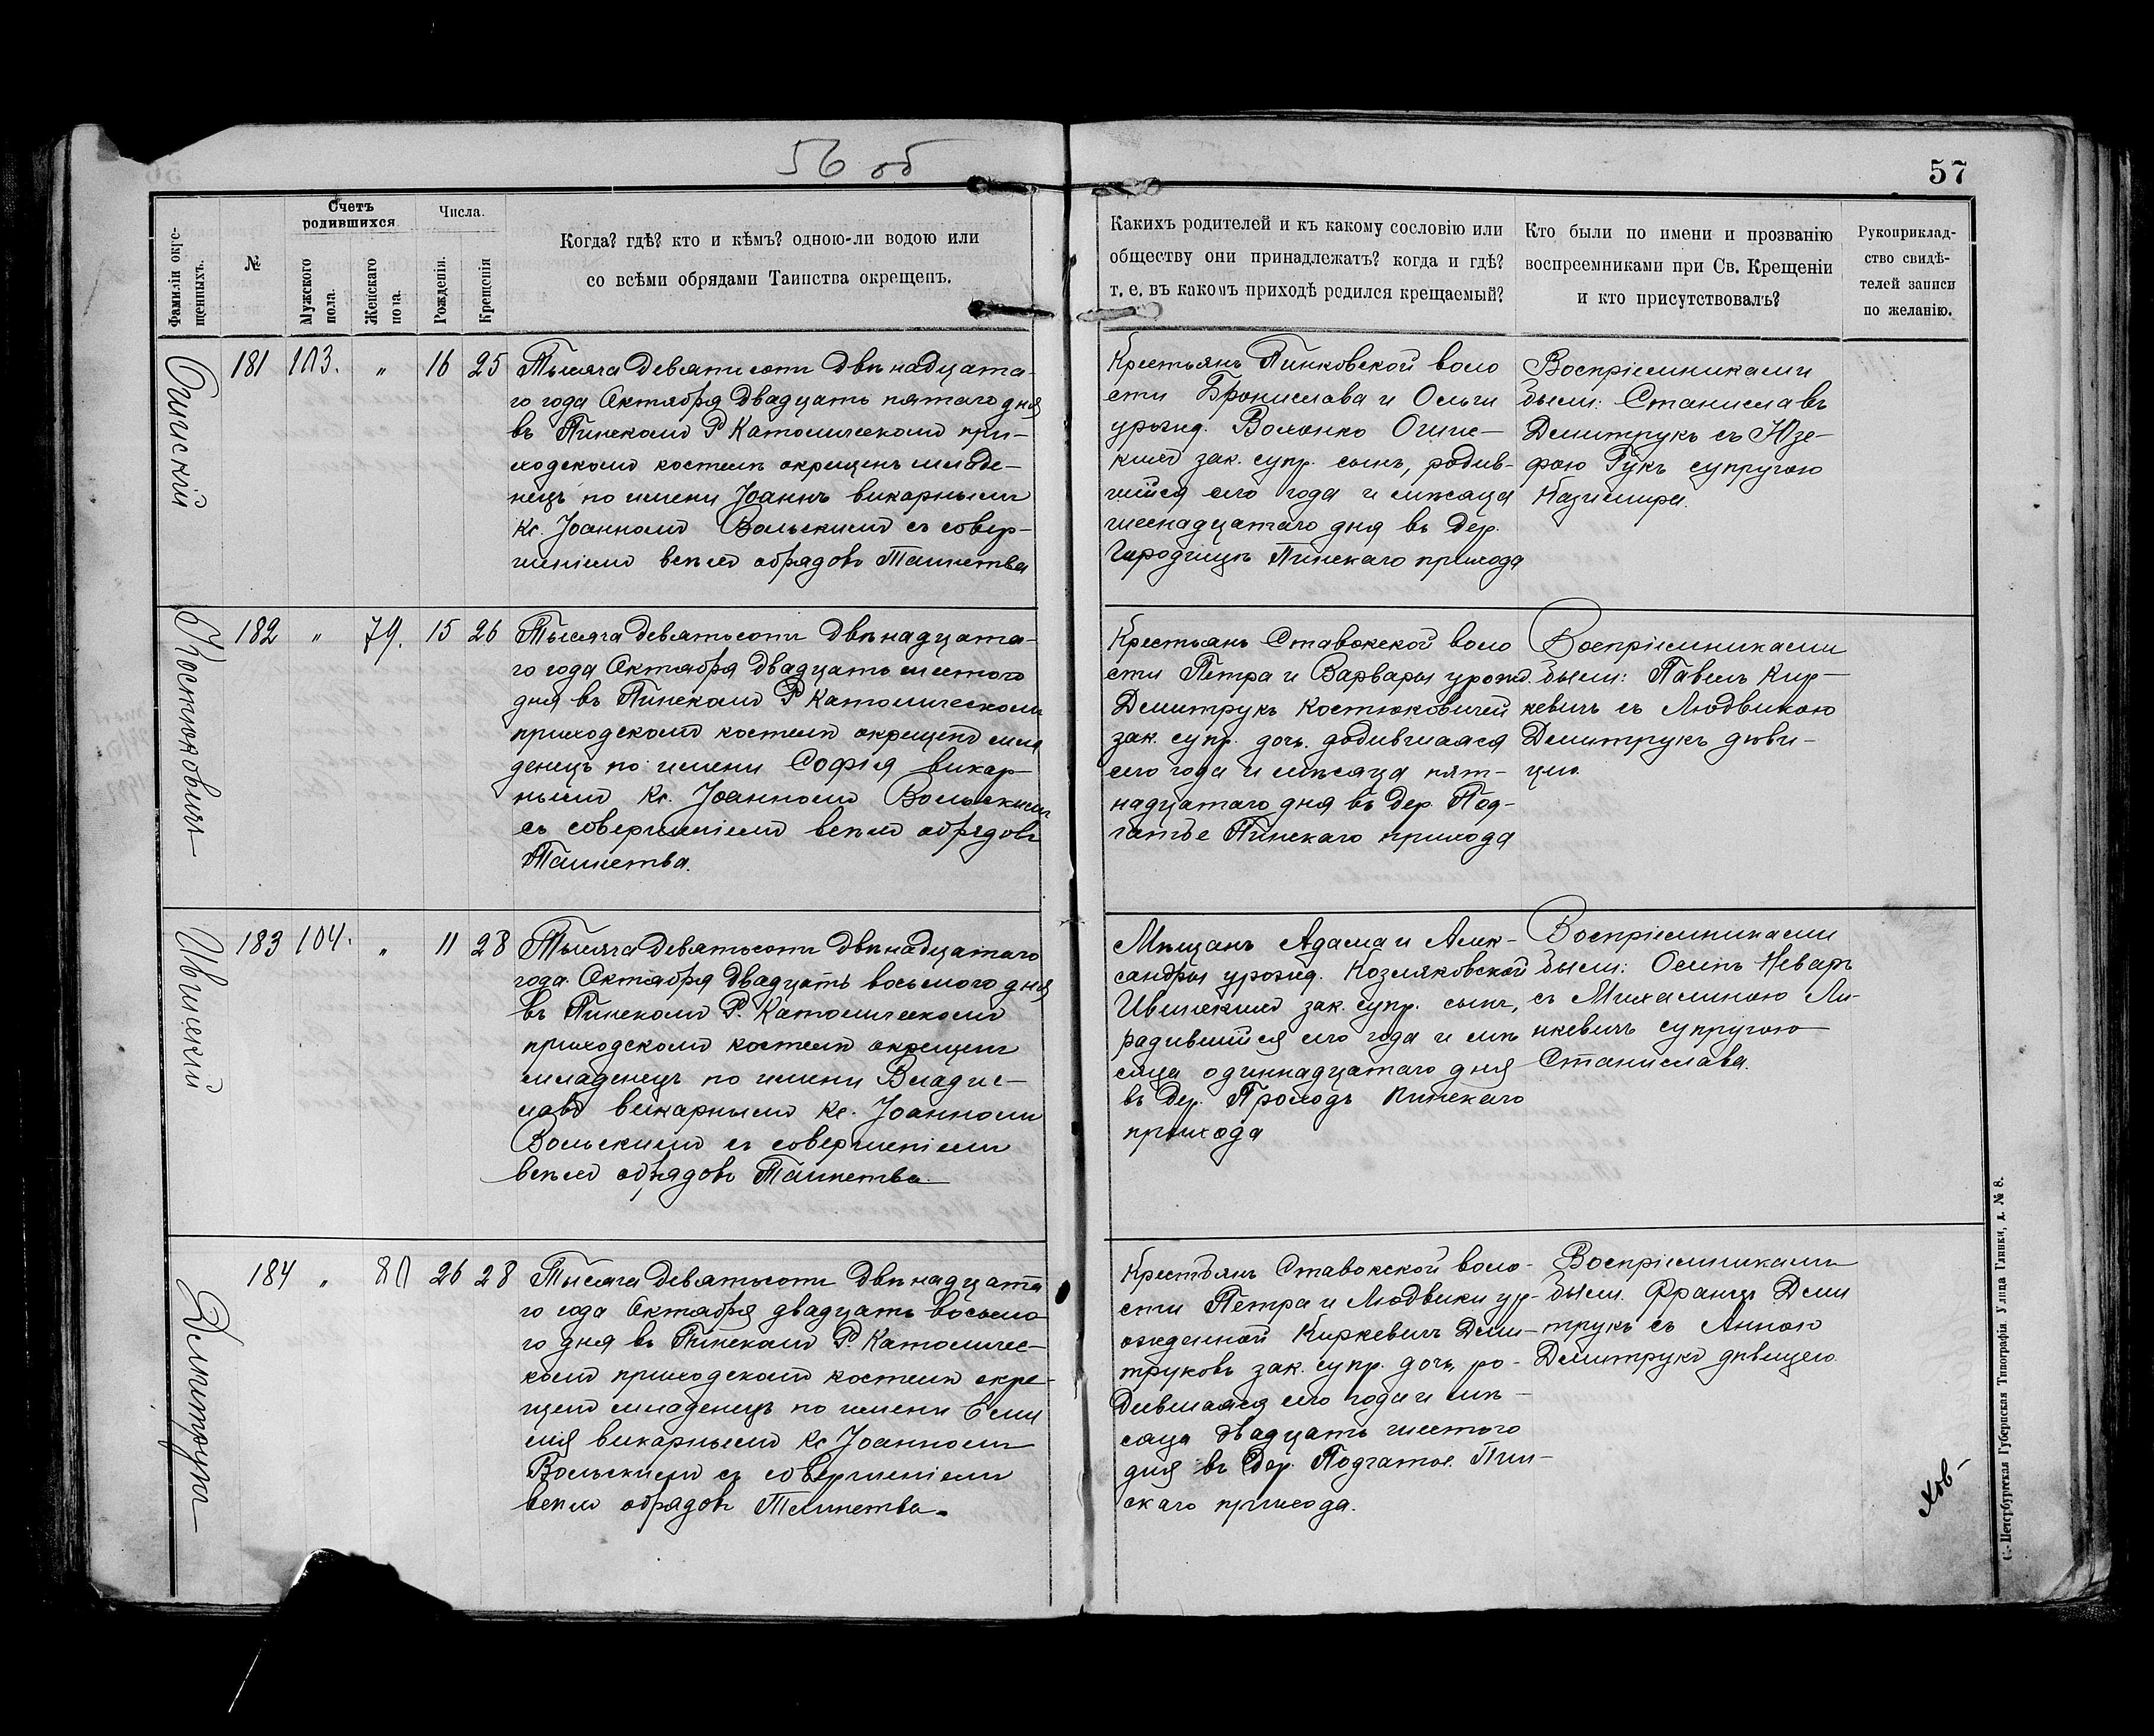 56 об
57
Фамиліи окре-
щенныхъ.
№
Счетъ
родившихся
Мужского
пола.
Женскаго
пола.
Числа.
Рожденія.
Крещенія
Когда? гдѣ? кто и кѣмъ? одною-ли водою или
со всѣми обрядами Таинства окрещенъ.
Какихъ родителей и къ какому сословію или
обществу они принадлежатъ? когда и гдѣ?
т. е. въ какомъ приходѣ родился крещаемый?
Кто были по имени и прозванію
воспреемниками при Св. Крещеніи
и кто присутствовалъ?
Рукоприклад-
ство свидѣ-
телей записи
по желанію.
181 103. " 16 25
Тысяча девятисотъ двѣнадцата-
го года Октября двадцать пятаго дня
въ Пинскомъ Р Католическомъ при-
ходскомъ костелѣ окрещенъ младе-
нецъ по имени Іоаннъ викарнымъ
Кс. Іоанномъ Вольскимъ съ совер-
шеніемъ всѣхъ обрядовъ Таинства
Крестьянъ Пинковской воло
сти Бронислава и Ольги
урожд. Воложко
зак. супр. сынъ, родив-
шійся сего года и мѣсяца
шеснадцатаго дня въ дер.
Городищѣ Пинскаго прихода
Воспріемниками
были: Станиславъ
Дмитрукъ съ Юзе-
фою Гукъ супругою
Казимира.
Костюковичъ
182 " 79. 15 26
Тысяча девятьсотъ двѣнадцата-
го года Октября двадцать шестого
дня въ Пинскомъ Р Католическомъ
приходскомъ костелѣ окрещенъ мла
денецъ по имени Софія викар-
нымъ Кс. Іоанномъ Вольскимъ
съ совершеніемъ всѣхъ обрядовъ
Таинства.
Крестьянъ Ставокской воло
сти Петра и Варвары урожд.
Дмитрукъ Костюковичей
зак. супр. дочь, родившаяся
сего года и мѣсяца пят-
надцатаго дня въ дер. Под-
гатье Пинскаго прихода
Воспріемниками
были: Павелъ Кир-
кевичъ съ Людвикою
Дмитрукъ дѣви-
цею.
Ивинскій
183 104. " 11 28
Тысяча девятьсотъ двѣнадцатаго
года Октября двадцать восьмого дня
въ Пинскомъ Р. Католическомъ
приходскомъ костелѣ окрещенъ
младенецъ по имени Владис-
лавъ викарнымъ Кс. Іоанномъ
Вольскимъ съ совершеніемъ
всѣхъ обрядовъ Таинства
Мѣщанъ Адама и Алек-
сандры урожд. Козляковской
Ивинскихъ зак. супр. сынъ,
родившійся сего года и мѣ
сяца одиннадцатаго дня
въ дер. Пинскаго
прихода
Воспріемниками
были: Осипъ Неваръ
съ Михалиною Ли-
нкевичъ супругою
Станислава.
Дмитрукъ
184 " 80 26 28
Тысяча девятьсотъ двѣнадцата
го года Октября двадцать восьмо
го дня въ Пинскомъ Р. Католичес-
комъ приходскомъ костелѣ окре-
щенъ младенецъ по имени Еми
лія викарнымъ Кс Іоанномъ
Вольскимъ съ совершеніемъ
всѣхъ обрядовъ Таинства.
Крестьянъ Ставокской воло-
сти Петра и Людвики ур-
ожденной Киркевичъ Дми-
труковъ зак. супр. дочь, ро-
дившаяся сего года и мѣ-
сяца двадцать шестого
дня въ дер. Подгатье Пин-
скаго прихода.
Воспріемниками
были Францъ Дми
трукъ съ Анною
Дмитрукъ дѣвицею.
С.-Петербургская Губернская Типографія Улица Глинки, д. № 8.